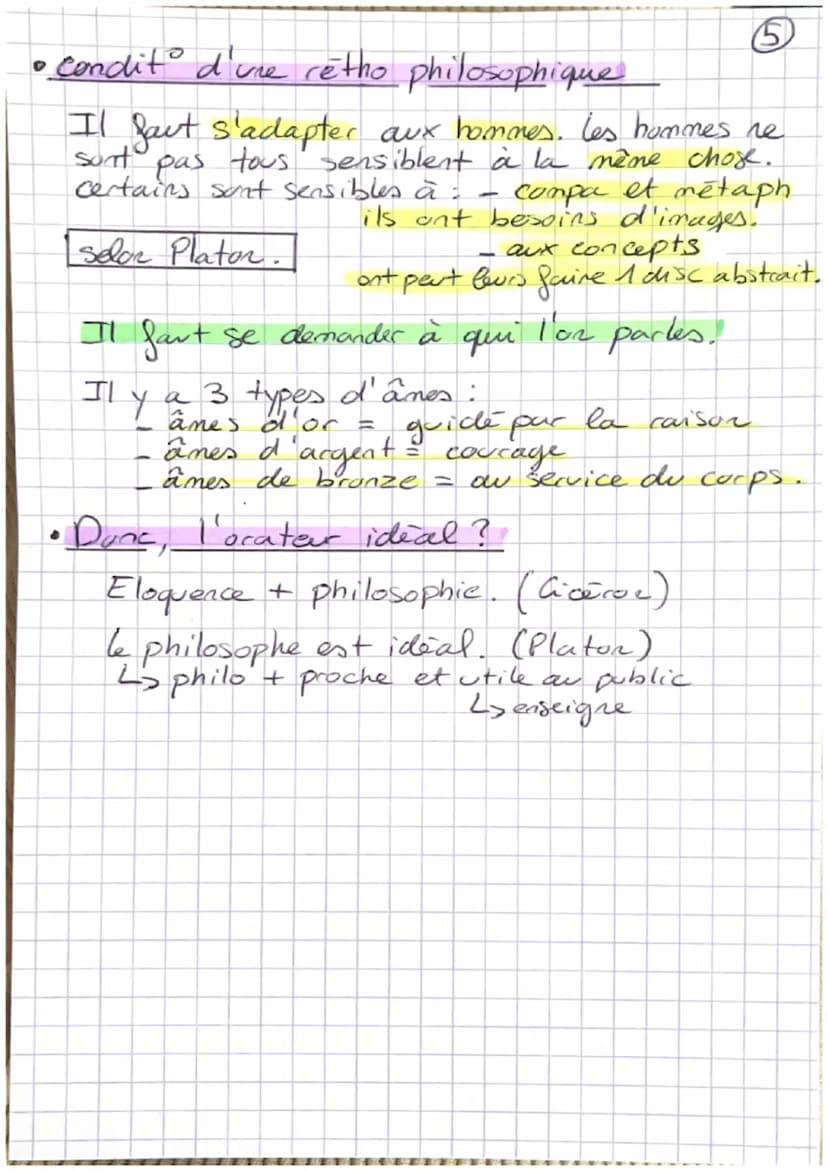 5
• condit° d'une rétho philosophique
Il faut s'adapter aux hommes. Les hommes ne
sont pas tous sensiblent à la même chose.
certains sont sensibles à : - compa et métaph
ils ont besoins d'images.
selon Platon.
- aux concepts
ont peut leurs faire 1 disc abstrait.
Il faut se demander à qui l'on parles!
Il y a 3 types d'ânes :
- ânes d'or = guidé par la raison
- ânes d'argent = courage
- ânes de bronze = au service du corps.
• Donc, l'orateur idéal ?
Eloquence + philosophie. (Cicéron)
Le philosophe est idéal. (Platon)
↳ philo + proche et utile au public
↳ enseigne